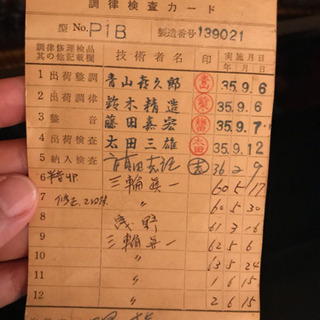 調律検査カード
型 No. P1B 製造番号 139021
調律修理検品其の他記載欄 技術者名 印 実施月日 年月日
1 出荷整調 青山喜久郎 35.9.6
2 出荷調律 鈴木精造 35.9.6
3 整音 藤田嘉宏 35.9.7
4 出荷検査 太田三雄 太田 35.9.12
5 納入検査 吉 36 2 9
6 三輪眞一 60 5 17
7 60 5 30
8 浅野 61 3 16
9 三輪眞一 62 5 6
10 〃 63 5 24
11 〃 1 6 15
12 〃 2 6 15